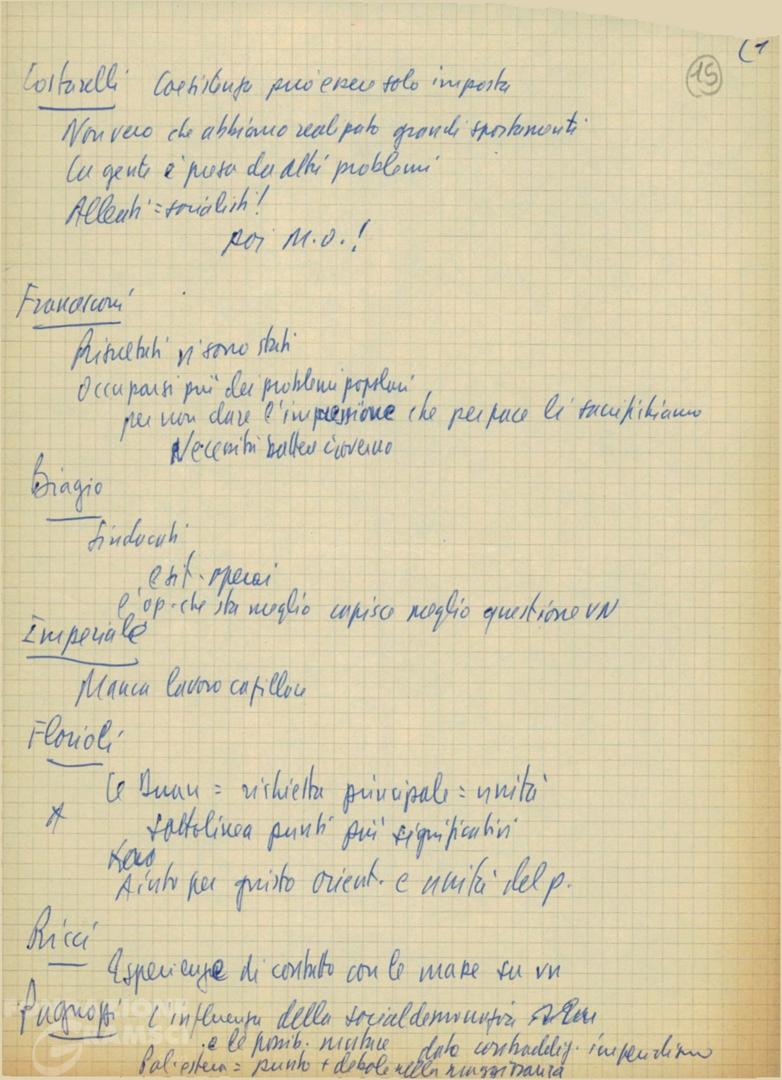 15
Costarelli Coesistenza può essere solo imposta
Non vero che abbiamo realizzato grandi spostamenti
La gente è presa da altri problemi
Alleati = socialisti!
poi M.O.!
Francisconi
Risultati vi sono stati
Occuparsi più dei problemi popolari
per non dare l'impressione che per pace li sacrifichiamo
Necessità batter Governo
Biagio
Sindacati
e sit. operai
l'op. che sta meglio capisce meglio questione VN
Imperiale
Manca lavoro capillare
Florioli
Le Duan = richiesta principale = unità
sottolinea punti più significativi
Aiuto per giusto orient. e unità del p.
Ricci
Esperienze di contatto con le masse su VN
Pagnozzi L'influenza della socialdemocrazia
e le possib. mutare dato contraddiz. imperialismo
Pol. estera = punto + debole nella maggioranza
FONDAZIONE
GRAMSCI